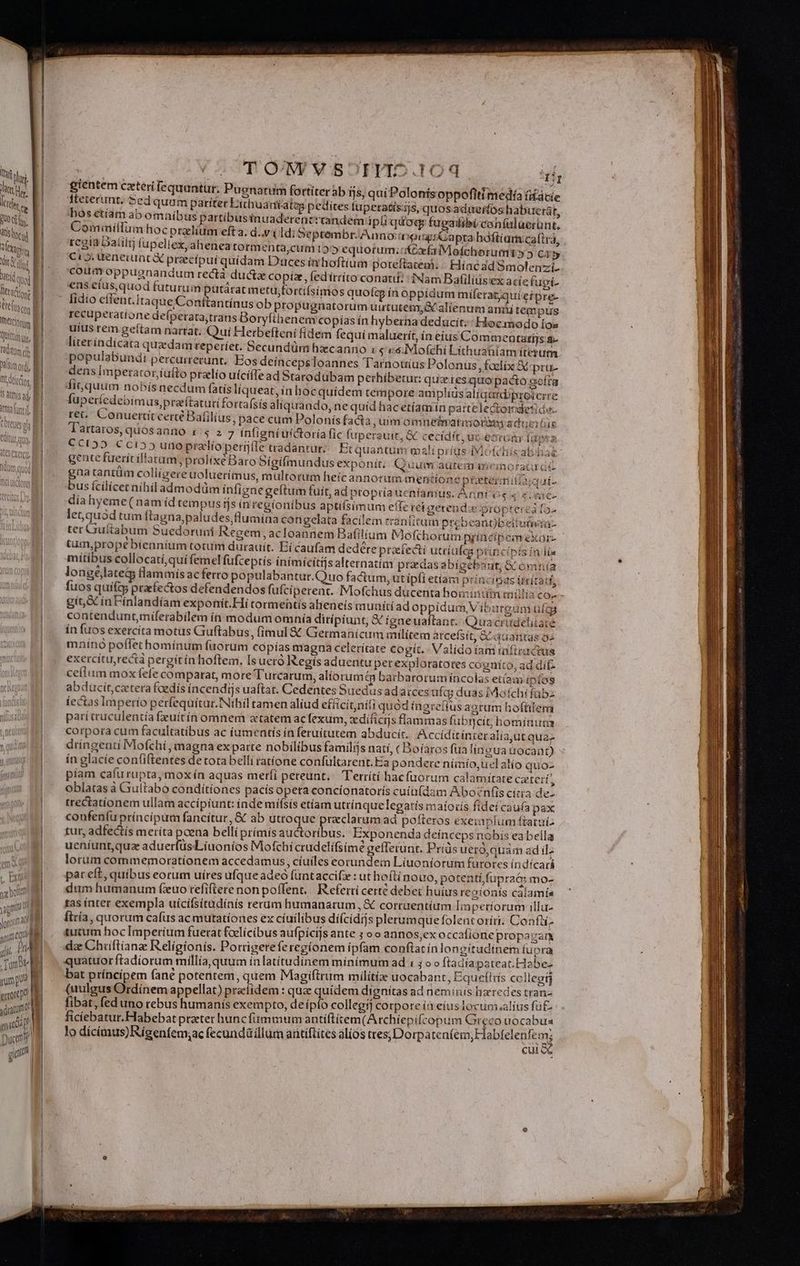 TOMVS
gientem cæteri sequuntur. Pugnatum fortiter ab ijs, qui Polonis oppositi media in acie
steterunt. Sed quum pariter Lithuani atq; pedites superatis ijs, quos aduersos habuerāt,
hos etiam ab omnibus partibus inuaderent: tandem ipsi quoq; fugā sibi consuluerunt.
Commissum hoc prælium est a. d. Septembr. Anno Capta hostium castra,
regia Basilij supellex, ahenea tormenta, cum equorum: Cæsa Moschorum
uenerunt & præcipui quidam Duces in hostium potestatem. Hinc ad Smolenzi-
cum oppugnandum recta ductæ copiæ, sed irrito conatu. Nam Basilius ex acie fugi-
ens eius, quod futurum putarat metu, fortissimos quosq; in oppidum miserat, qui ei præ-
sidio essent. Itaque Constantinus ob propugnatorum uirtutem, & alienum anni tempus
recuperatione desperata, trans Borysthenem copias in hyberna deducit. Hoc modo Io-
uius rem gestam narrat. Qui Herbesteni fidem sequi maluerit, in eius Commentarijs a-
liter indicata quædam reperiet. Secundum hæc anno Moschi Lithuaniam iterum
populabundi percurrerunt. Eos deinceps Ioannes Tarnouius Polonus, fœlix & pru-
dens Imperator, iusto prælio uicisse ad Starodubam perhibetur: quæ res quo pacto gesta
sit, quum nobis necdum satis liqueat, in hoc quidem tempore amplius aliquid proferre
supersedebimus, præstaturi fortassis aliquando, ne quid hac etiam in parte lector desyde-
ret. Conuertit certe Basilius, pace cum Polonis facta, uim omnem armorum aduersus
Tartaros, quos anno 1527 insigni uictoria sic superauit, & cecidit, ut eorum supra
uno prælio perijsse tradantur. Et quantum mali prius Moschis ab hac
gente fuerit illatum, prolixe Baro Sigismundus exponit. Quum autem memoratu di-
gna tantùm colligere uoluerimus, multorum heic annorum mentione prætermissa, qui-
bus scilicet nihil admodùm insigne gestum fuit, ad propria ueniamus. Anni me-
dia hyeme (nam id tempus ijs in regionibus aptissimum esse rei gerendæ propterea so-
let, quòd tum stagna, paludes, flumina congelata facilem transitum præbeant) bellum in-
ter Gustabum Suedorum Regem, ac Ioannem Basilium Moschorum principem exor-
tum, propè biennium totum durauit. Ei causam dedêre præfecti utriusq; principis in li-
mitibus collocati, qui semel susceptis inimicitijs alternatim prædas abigebant, & omnia
longè, lateq; flammis ac ferro populabantur. Quo factum, ut ipsi etiam principes irritati,
suos quisq; præfectos defendendos susciperent. Moschus ducenta hominum millia co-
git, & in Finlandiam exponit. Hi tormentis aheneis muniti ad oppidum Viburgum usq;
contendunt, miserabilem in modum omnia diripiunt, & igne uastant. Qua crudelitate
in suos exercita motus Gustabus, simul & Germanicum militem arcessit, & quantas o-
mnino posset hominum suorum copias magna celeritate cogit. Valido iam instructus
exercitu, recta pergit in hostem. Is uerò Regis aduentu per exploratores cognito, ad dis-
cessum mox sese comparat, more Turcarum, aliorumq; barbarorum incolas etiam ipsos
abducit, cætera fœdis incendijs uastat. Cedentes Suedus ad arces usq; duas Moschi sub-
iectas Imperio persequitur. Nihil tamen aliud effecit, nisi quòd ingressus agrum hostilem
pari truculentia sæuit in omnem ætatem ac sexum, ædificijs flammas subijcit, hominum
corpora cum facultatibus ac iumentis in seruitutem abducit. Accidit inter alia, ut qua-
dringenti Moschi, magna ex parte nobilibus familijs nati, (Boiaros sua lingua uocant)
in glacie consistentes de tota belli ratione consultarent. Ea pondere nimio, uel alio quo-
piam casu rupta, mox in aquas mersi pereunt. Territi hac suorum calamitate cæteri,
oblatas à Gustabo conditiones pacis opera concionatoris cuiusdam Aboënsis citra de-
trectationem ullam accipiunt: inde missis etiam utrinque legatis maioris fidei causa pax
consensu principum sancitur, & ab utroque præclarum ad posteros exemplum statui-
tur, adfectis merita pœna belli primis auctoribus. Exponenda deinceps nobis ea bella
ueniunt, quæ aduersus Liuonios Moschi crudelissimè gesserunt. Priùs uerò, quàm ad il-
lorum commemorationem accedamus, ciuiles eorundem Liuoniorum furores indicari
par est, quibus eorum uires usque adeò sunt accisæ: ut hosti nouo, potenti, supraq; mo-
dum humanum sæuo resistere non possent. Referri certè debet huius regionis calamis
tas inter exempla uicissitudinis rerum humanarum, & corruentium Imperiorum illu-
stria, quorum casus ac mutationes ex ciuilibus discidijs plerumque solent oriri. Consti-
tutum hoc Imperium fuerat fœlicibus auspicijs ante 300 annos, ex occasione propagan
dæ Christianæ Religionis. Porrigere se regionem ipsam constat in longitudinem supra
quatuor stadiorum millia, quum in latitudinem minimum ad 1300 stadia pateat. Habe-
bat principem sanè potentem, quem Magistrum militiæ uocabant, Equestris collegij
(uulgus Ordinem appellat) præsidem: quæ quidem dignitas ad neminis hæredes tran-
sibat, sed uno rebus humanis exempto, de ipso collegij corpore in eius locum alius suf-
ficiebatur. Habebat præter hunc summum antistitem (Archiepiscopum Græco uocabu
lo dicimus) Rigensem, ac secundū illum antistites alios tres, Dorpatensem, Habselensem;
cui &